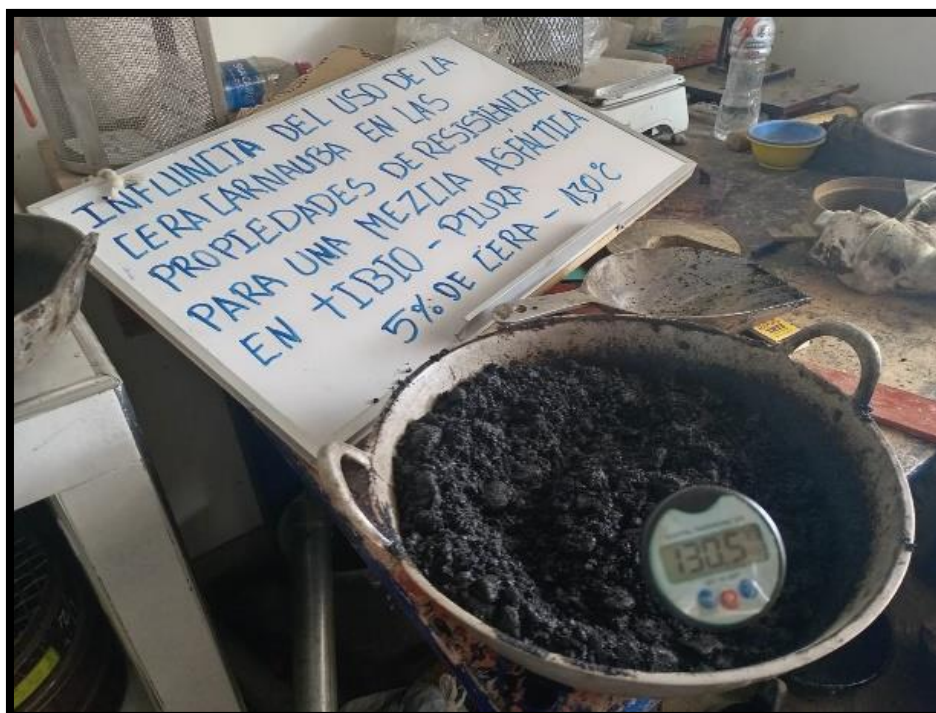 INFLUNCIA DEL USO DE LA
CERA CARNAUBA EN LAS
PROPIEDADES DE RESISTENCIA
PARA UNA MEZCLA ASFÁLTICA
EN TIBIO - PIURA
5% DE CERA - 130°C
130.5